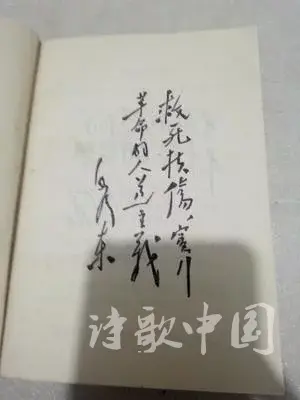 救死扶傷，实行
革命的人道主義
毛泽东
诗歌中国